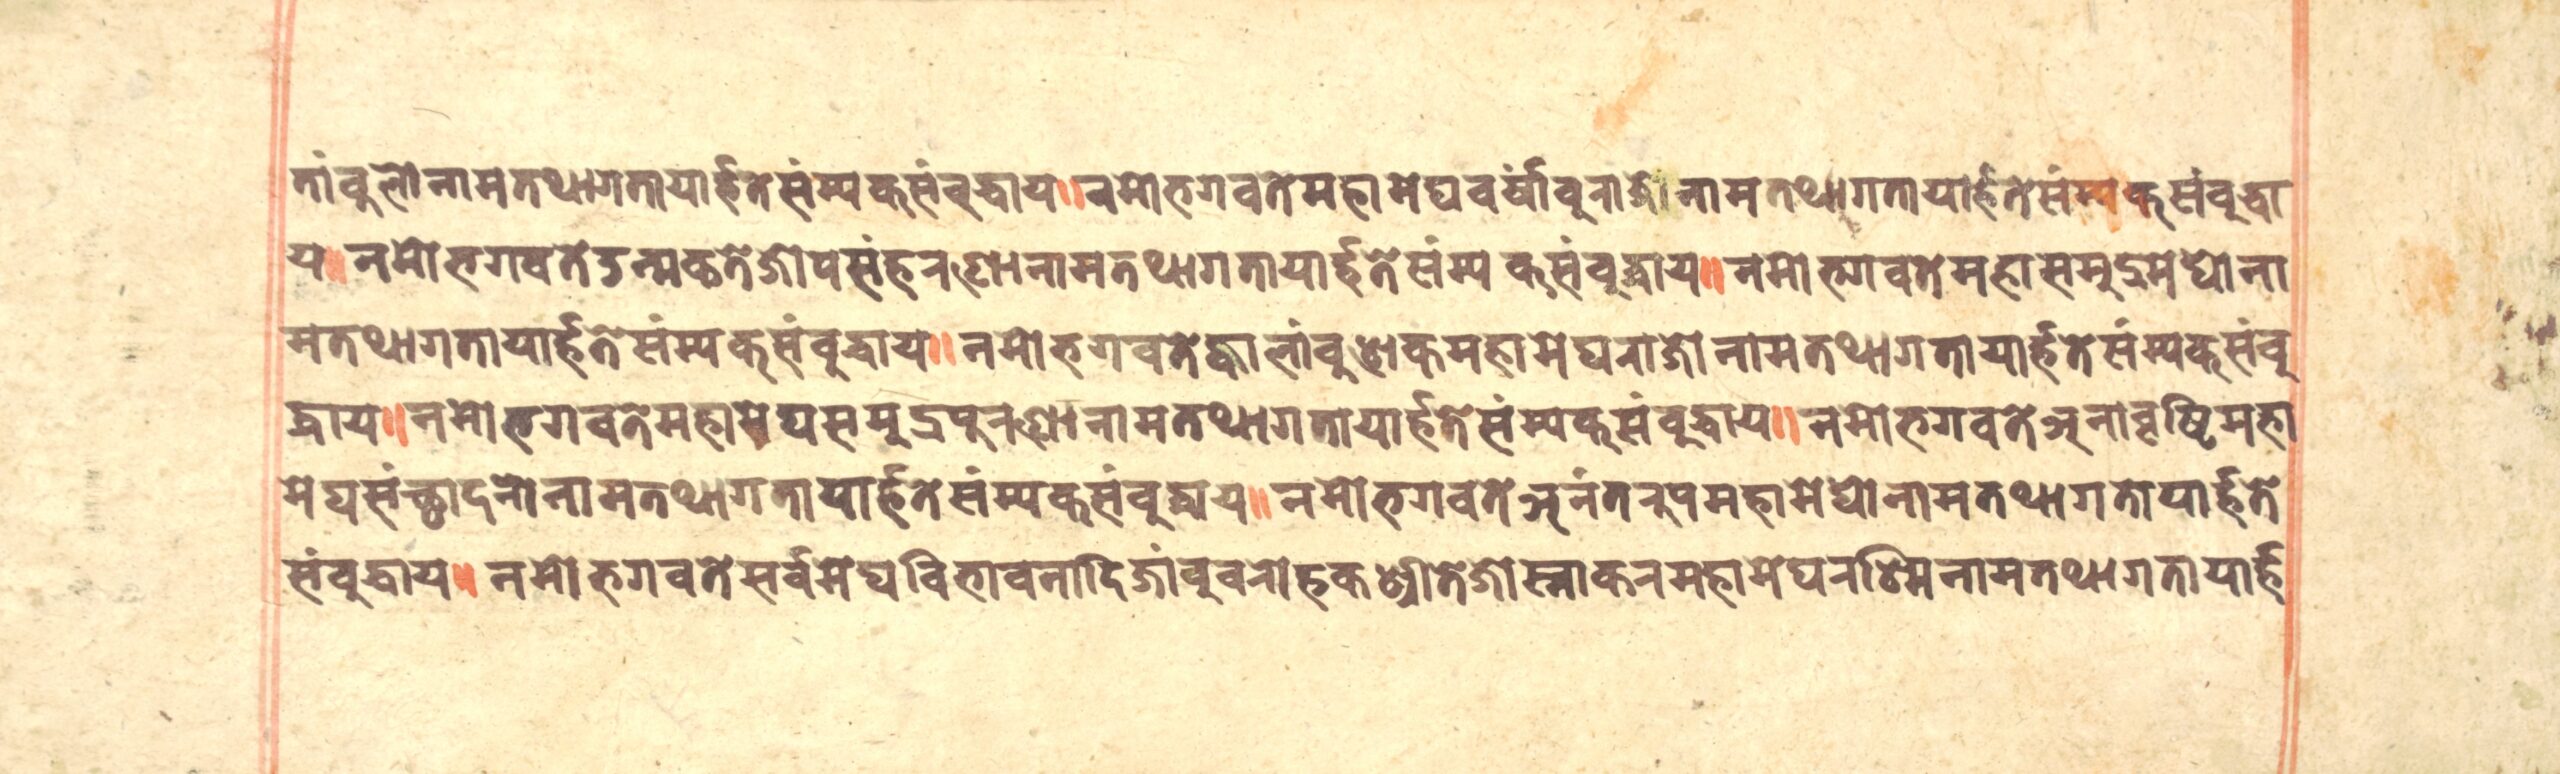 तांवुलोनामतथागतायार्हतेसंम्यक्संवुद्धाय॥नमोभगवतेमहामेघवर्षांवुराजोनामतथागतायार्हतेसंम्यक्संवुद्धा
य॥नमोभगवते नामतथागतायार्हतेसंम्यक्संवुद्धाय॥नमोभगवतेमहासमुद्रमेघोना
मतथागतायार्हतेसंम्यक्संवुद्धाय॥नमोभगवते महामेघराजोनामतथागतायार्हतेसंम्यक्संवु
द्धाय॥नमोभगवतेमहामेघसमुद्रपुरश्रानामतथागतायार्हतेसंम्यक्संवुद्धाय॥नमोभगवतेअनावृष्टिमहा
मेघसंच्छादनोनामतथागतायार्हतेसंम्यक्संवुद्धाय॥नमोभगवतेअनंतरुपमहामेघोनामतथागतोयार्हते
संवुद्धाय॥नमोभगवतेसर्वमेघविभावनादिजांवुवरो महामेघरश्मिनामतथागतायार्ह